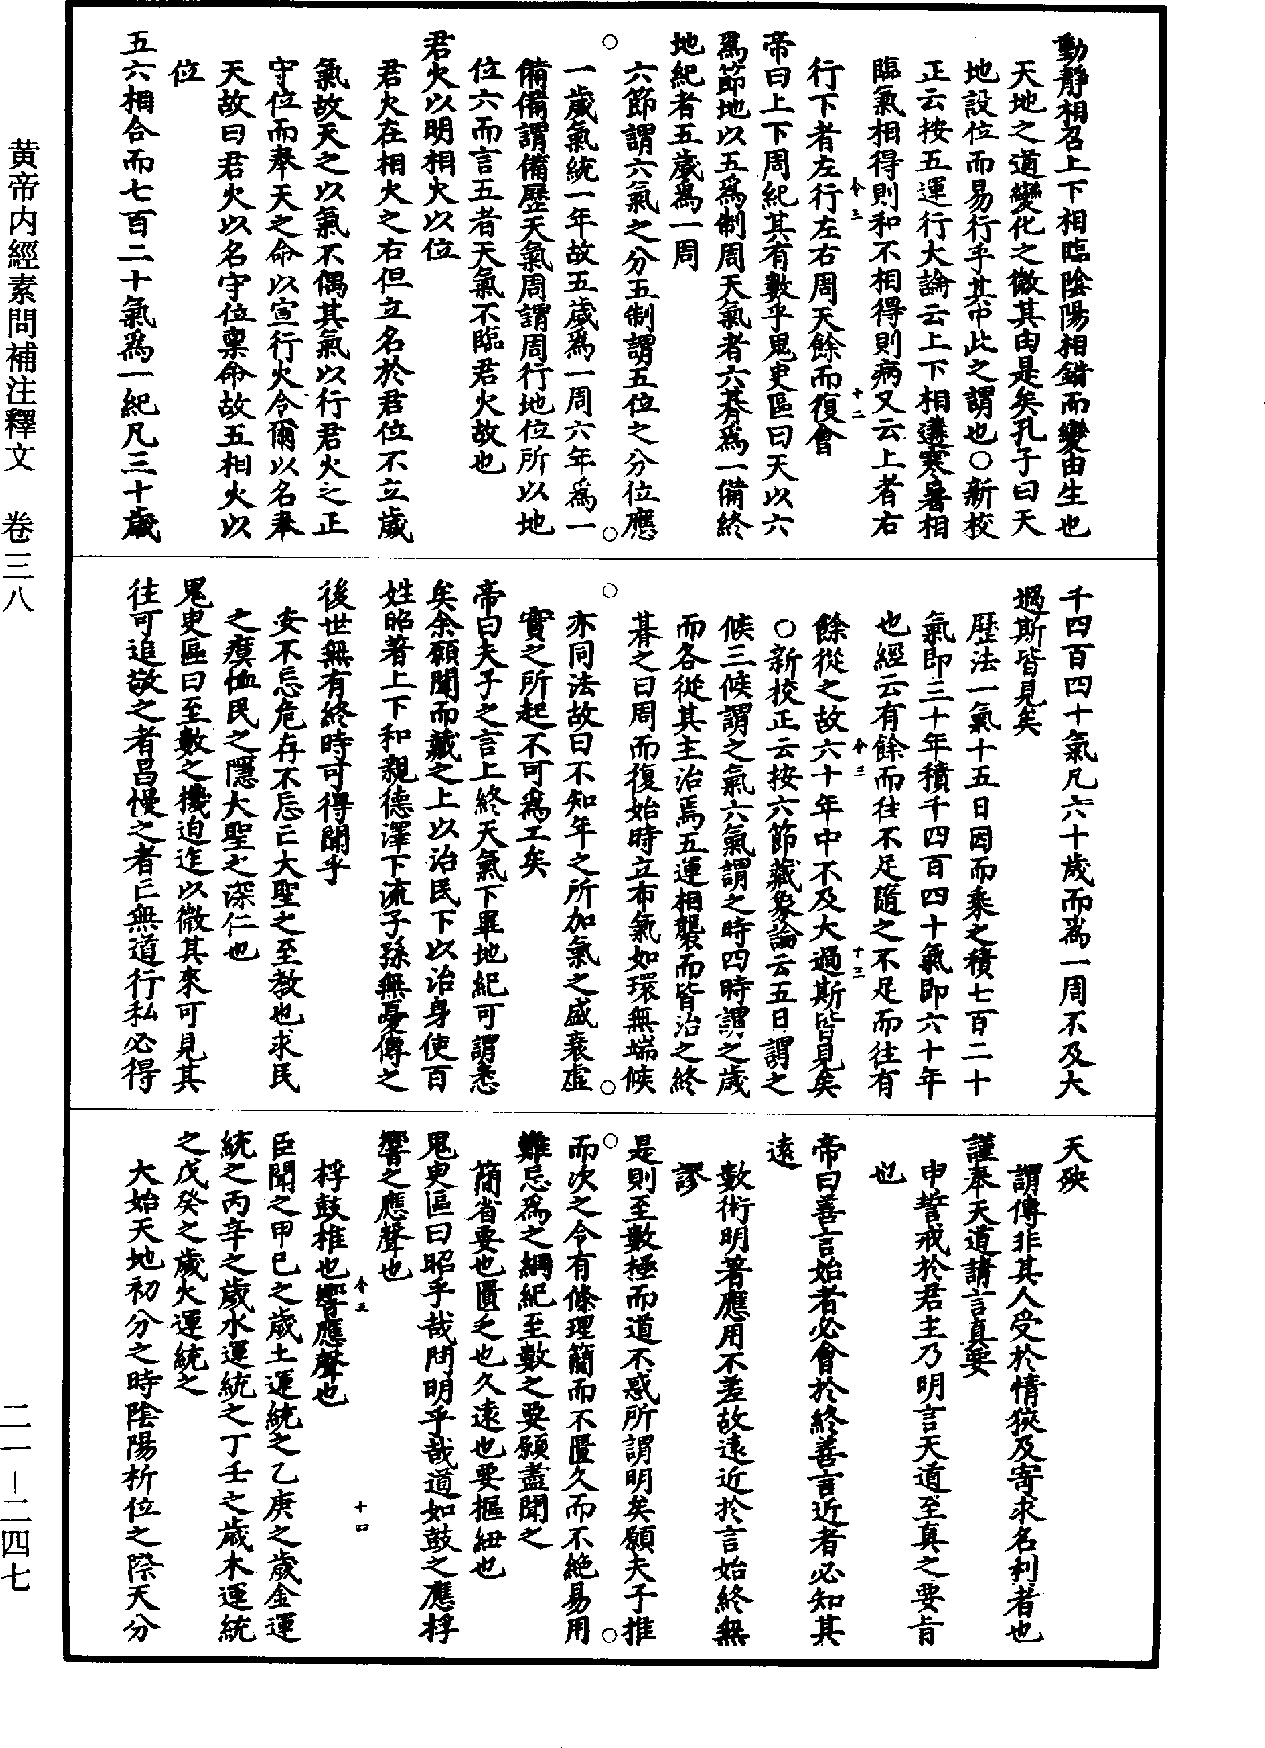 動靜相召上下相臨陰陽相錯而變由生也
天地之道變化之微其由是矣孔子曰天
地設位而易行乎其中此之謂也○新校
正云按五運行大論云上下相遘寒暑相
臨氣相得則和不相得則病又云上者右
行下者左行左右周天餘而復會
帝曰上下周紀其有數乎鬼臾區曰天以六
爲節地以五爲制周天氣者六朞爲一備終
地紀者五歲爲一周
六節謂六氣之分五制謂五位之分位應
一歲氣統一年故五歲爲一周六年爲一
備備謂備歷天氣周謂周行地位所以地
位六而言五者天氣不臨君火故也
君火以明相火以位
君火在相火之右但立名於君位不立歲
氣故天之以氣不偶其氣以行君火之正
守位而奉天之命以宣行火令爾以名奉
天故曰君火以名守位稟命故五相火以
位
五六相合而七百二十氣爲一紀凡三十歲
千四百四十氣凡六十歲而爲一周不及太
過斯皆見矣
歷法一氣十五日因而乘之積七百二十
氣即三十年積千四百四十氣即六十年
也經云有餘而往不足隨之不足而往有
餘從之故六十年中不及大過斯皆見矣
○新校正云按六節藏象論云五日謂之
候三候謂之氣六氣謂之時四時謂之歲
而各從其主治焉五運相襲而皆治之終
朞之日周而復始時立布氣如環無端候
亦同法故曰不知年之所加氣之盛衰虛
實之所起不可爲工矣
帝曰夫子之言上終天氣下畢地紀可謂悉
矣余願聞而藏之上以治民下以治身使百
姓昭著上下和親德澤下流子孫無憂傳之
後世無有終時可得聞乎
安不忘危存不忘亡大聖之至教也求民
之瘼恤民之隱大聖之深仁也
鬼臾區曰至數之機迫迮以微其來可見其
往可追敬之者昌慢之者亡無道行私必得
天殃
謂傳非其人受於情狹及寄求名利者也
謹奉天道請言真要
申誓戒於君主乃明言天道至真之要旨
也
帝曰善言始者必會於終善言近者必知其
遠
數術明著應用不差故遠近於言始終無
謬
是則至數極而道不惑所謂明矣願夫子推
而次之令有條理簡而不匱久而不絶易用
難忘爲之綱紀至數之要願盡聞之
簡省要也匱乏也久遠也要樞紐也
鬼臾區曰昭乎哉問明乎哉道如鼓之應桴
響之應聲也
桴鼓椎也響應聲也
臣聞之甲己之歲土運統之乙庚之歲金運
統之丙辛之歲水運統之丁壬之歲木運統
之戊癸之歲火運統之
大始天地初分之時陰陽析位之際天分
黄帝内經素問補注釋文 卷三八
二一－二四七